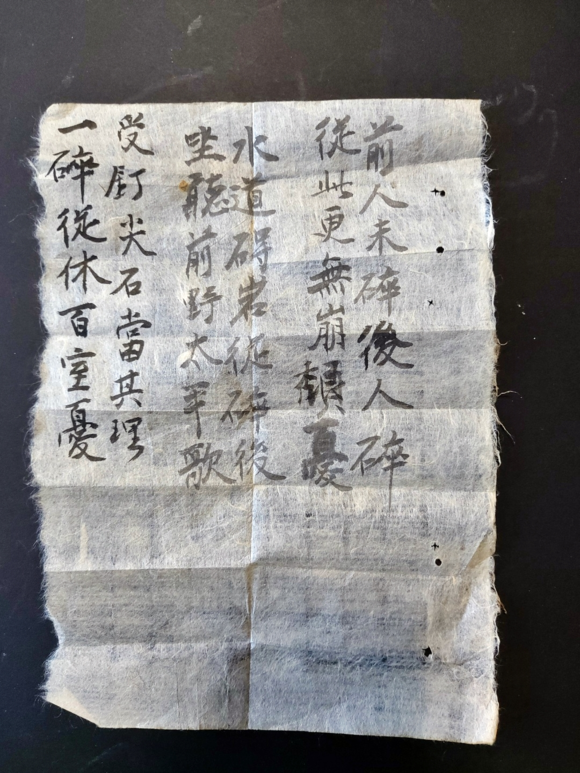 前人未碎後人碎
從此更無崩頹憂
水道碍岩從碎後
坐聽前野太平歌
受釘尖石當其理
一碎從休百室憂